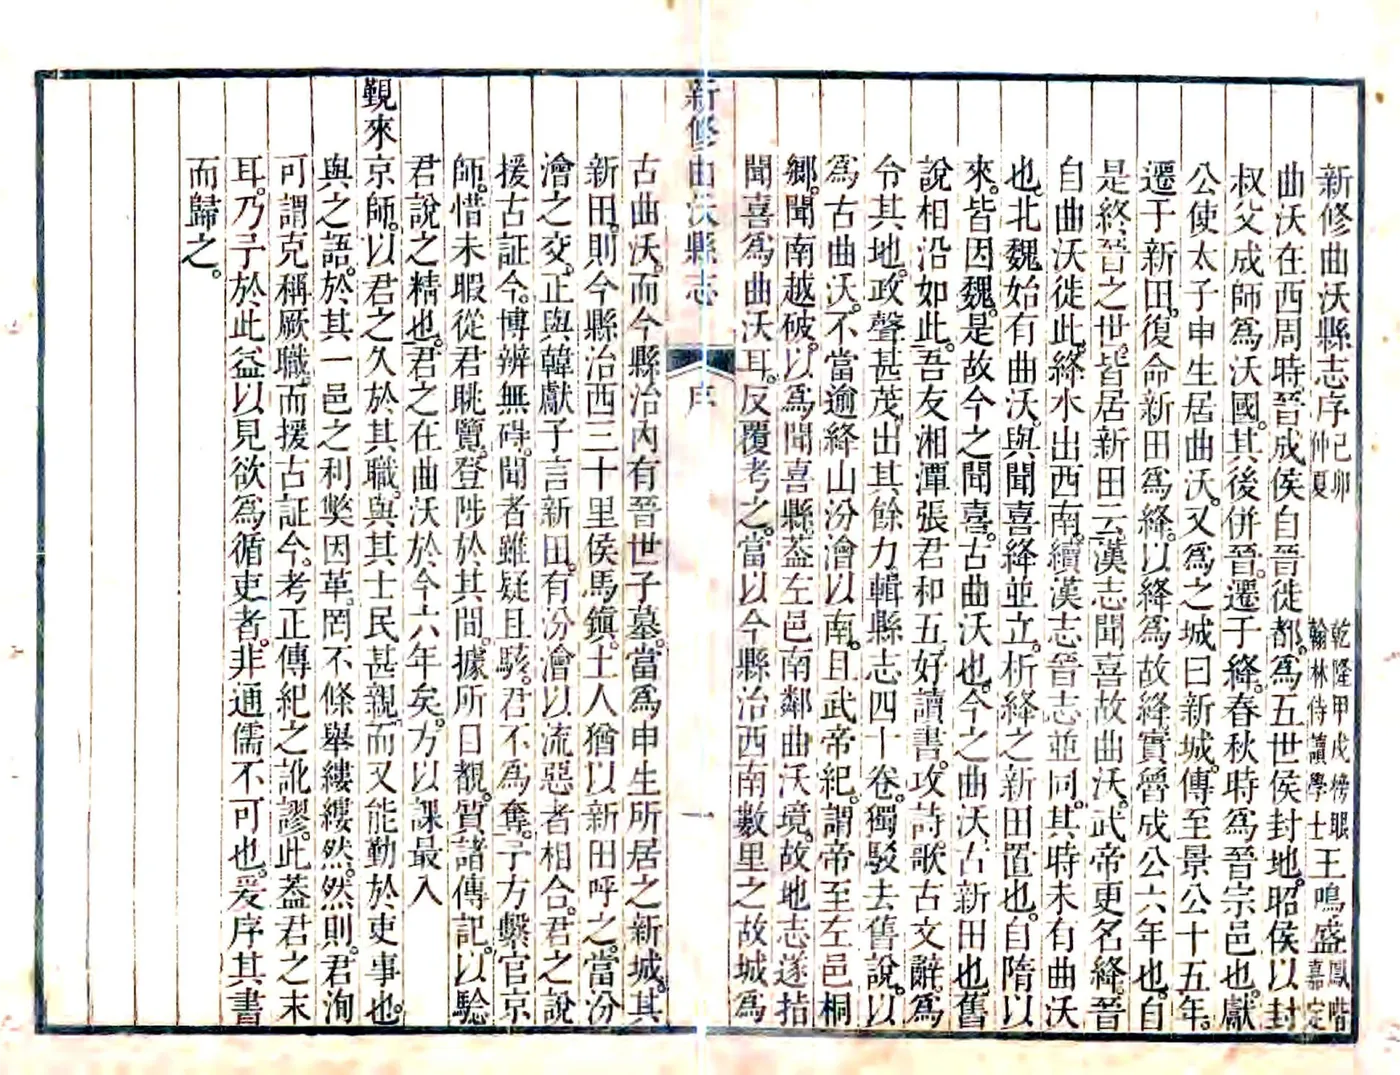 新修曲沃縣志序己卯仲夏 乾隆甲戌榜眼翰林侍讀學士王鳴盛鳳喈嘉定
曲沃在西周時晉成侯自晉徙都。為五世侯封地。昭侯以封
叔父成師為沃國。其後併晉。遷于絳。春秋時為晉宗邑也。獻
公使太子申生居曲沃。又為之城曰新城。傳至景公十五年。
遷于新田。復命新田為絳。以絳為故絳。實魯成公六年也。自
是終晉之世。皆居新田云。漢志聞喜故曲沃。武帝更名絳。晉
自曲沃徙此。絳水出西南。續漢志晉志並同。其時未有曲沃
也。北魏始有曲沃。與聞喜絳並立。析絳之新田置也。自隋以
來。皆因魏。是故今之聞喜。古曲沃也。今之曲沃。古新田也。舊
說相沿如此。吾友湘潭張君和五。好讀書。攻詩。歌古文辭。為
令其地。政聲甚茂。出其餘力。輯縣志四十卷。獨駁去舊說。以
為古曲沃。不當逾絳山汾澮以南。且武帝紀。謂帝至左邑桐
鄉。聞南越破。以為聞喜縣。葢左邑南鄰曲沃境。故地志遂指
聞喜為曲沃耳。反覆考之。當以今縣治西南數里之故城為
新修曲沃縣志 序 一
古曲沃。而今縣治內有晉世子墓。當為申生所居之新城。其
新田。則今縣治西三十里侯馬鎮。土人猶以新田呼之。當汾
澮之交。正與韓獻子言新田。有汾澮以流惡者相合。君之說
援古証今。博辨無碍。聞者雖疑且駭。君不為奪。予方繫官京
師。惜未暇從君眺覽。登陟於其間。據所目覩。質諸傳記。以驗
君說之精也。君之在曲沃於今六年矣。方以課最入
覲來京師。以君之久於其職。與其士民甚親。而又能勤於吏事也。
與之語。於其一邑之利獘因革。罔不條舉縷縷然。然則。君洵
可謂克稱厥職。而援古証今。考正傳紀之訛謬。此葢君之末
耳。乃予於此益以見欲為循吏者。非通儒不可也。爰序其書
而歸之。